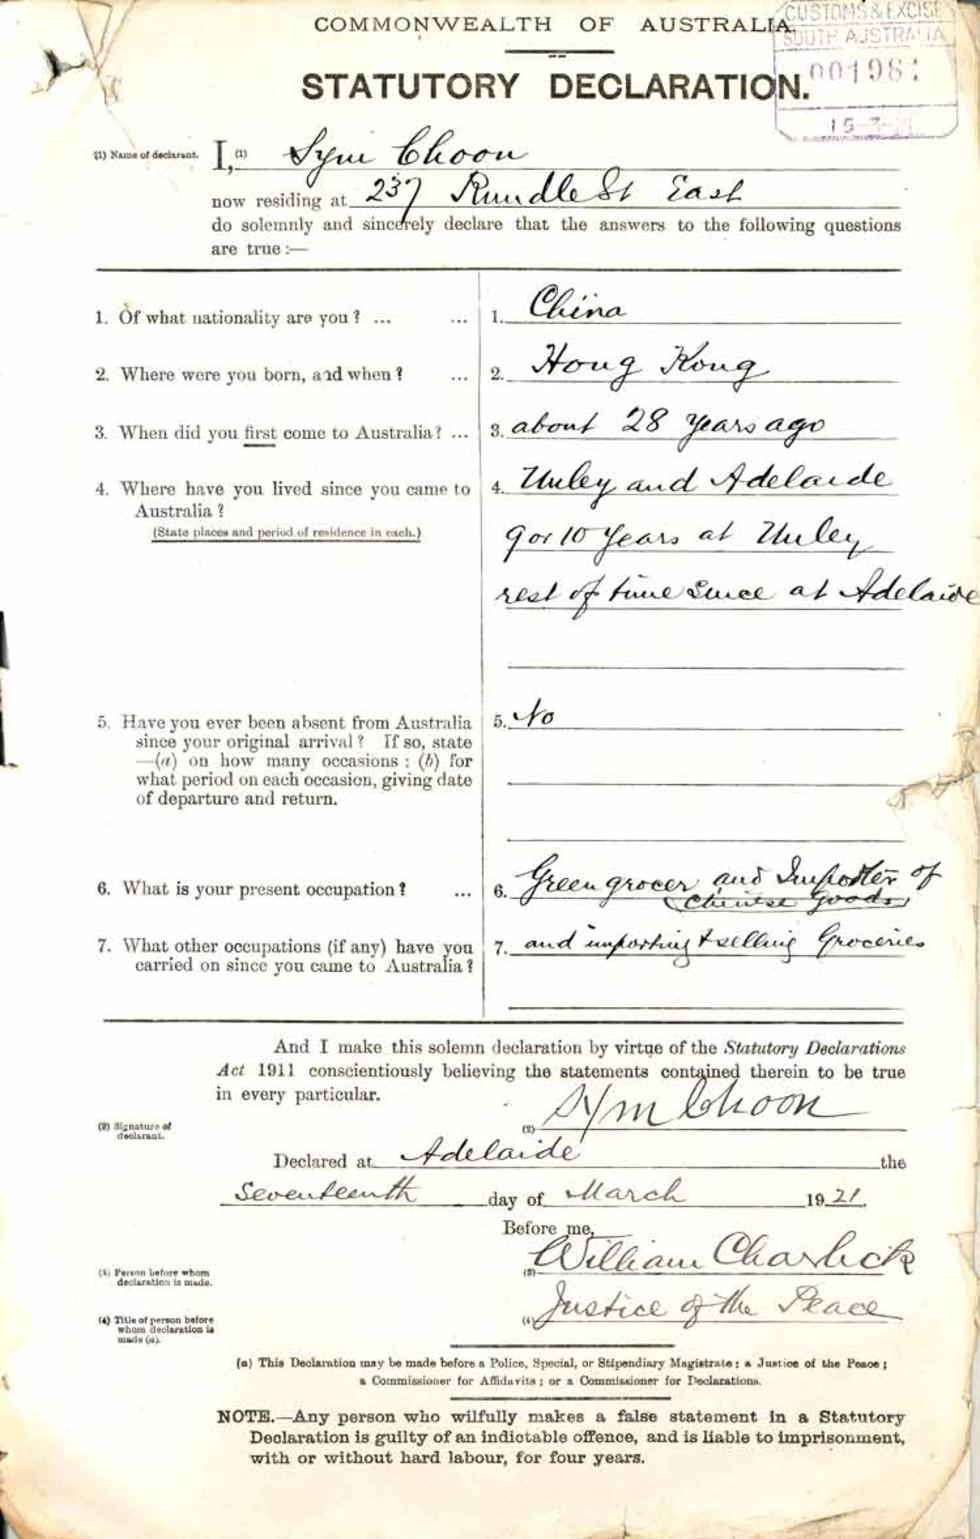 COMMONWEALTH OF AUSTRALIA
CUSTOMS & EXCISE
SOUTH AUSTRALIA
001981
STATUTORY DECLARATION.
15-3-
(1) Name of declarant. I, (1) Sym Choon
now residing at 237 Rundle St East
do solemnly and sincerely declare that the answers to the following questions
are true :—
1. Of what nationality are you ? ... ... 1. China
2. Where were you born, and when ? ... 2. Hong Kong
3. When did you first come to Australia? ... 3. about 28 years ago
4. Where have you lived since you came to 4. Unley and Adelaide
Australia ?
(State places and period of residence in each.)
9 or 10 years at Unley
rest of time since at Adelaide
5. Have you ever been absent from Australia 5. No
since your original arrival ? If so, state
—(a) on how many occasions : (b) for
what period on each occasion, giving date
of departure and return.
6. What is your present occupation ? ... 6. Green grocer and Importer of
Chinese Goods
7. What other occupations (if any) have you 7. and importing & selling Groceries
carried on since you came to Australia ?
And I make this solemn declaration by virtue of the Statutory Declarations
Act 1911 conscientiously believing the statements contained therein to be true
in every particular.
(2) Signature of
declarant.
(2) Sym Choon
Declared at Adelaide the
Seventeenth day of March 1921.
Before me,
(3) Person before whom
declaration is made.
(3) William Charlick
(4) Title of person before
whom declaration is
made (a).
(4) Justice of the Peace
(a) This Declaration may be made before a Police, Special, or Stipendiary Magistrate ; a Justice of the Peace ;
a Commissioner for Affidavits ; or a Commissioner for Declarations.
NOTE.—Any person who wilfully makes a false statement in a Statutory
Declaration is guilty of an indictable offence, and is liable to imprisonment,
with or without hard labour, for four years.